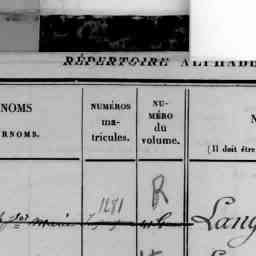 RÉPERTOIRE ALPHABÉ
NOMS
RNOMS.
NUMÉROS
ma-
tricules.
NU-
MÉRO
du
volume.
N
(Il doit être
1281
R
Marie
Lang